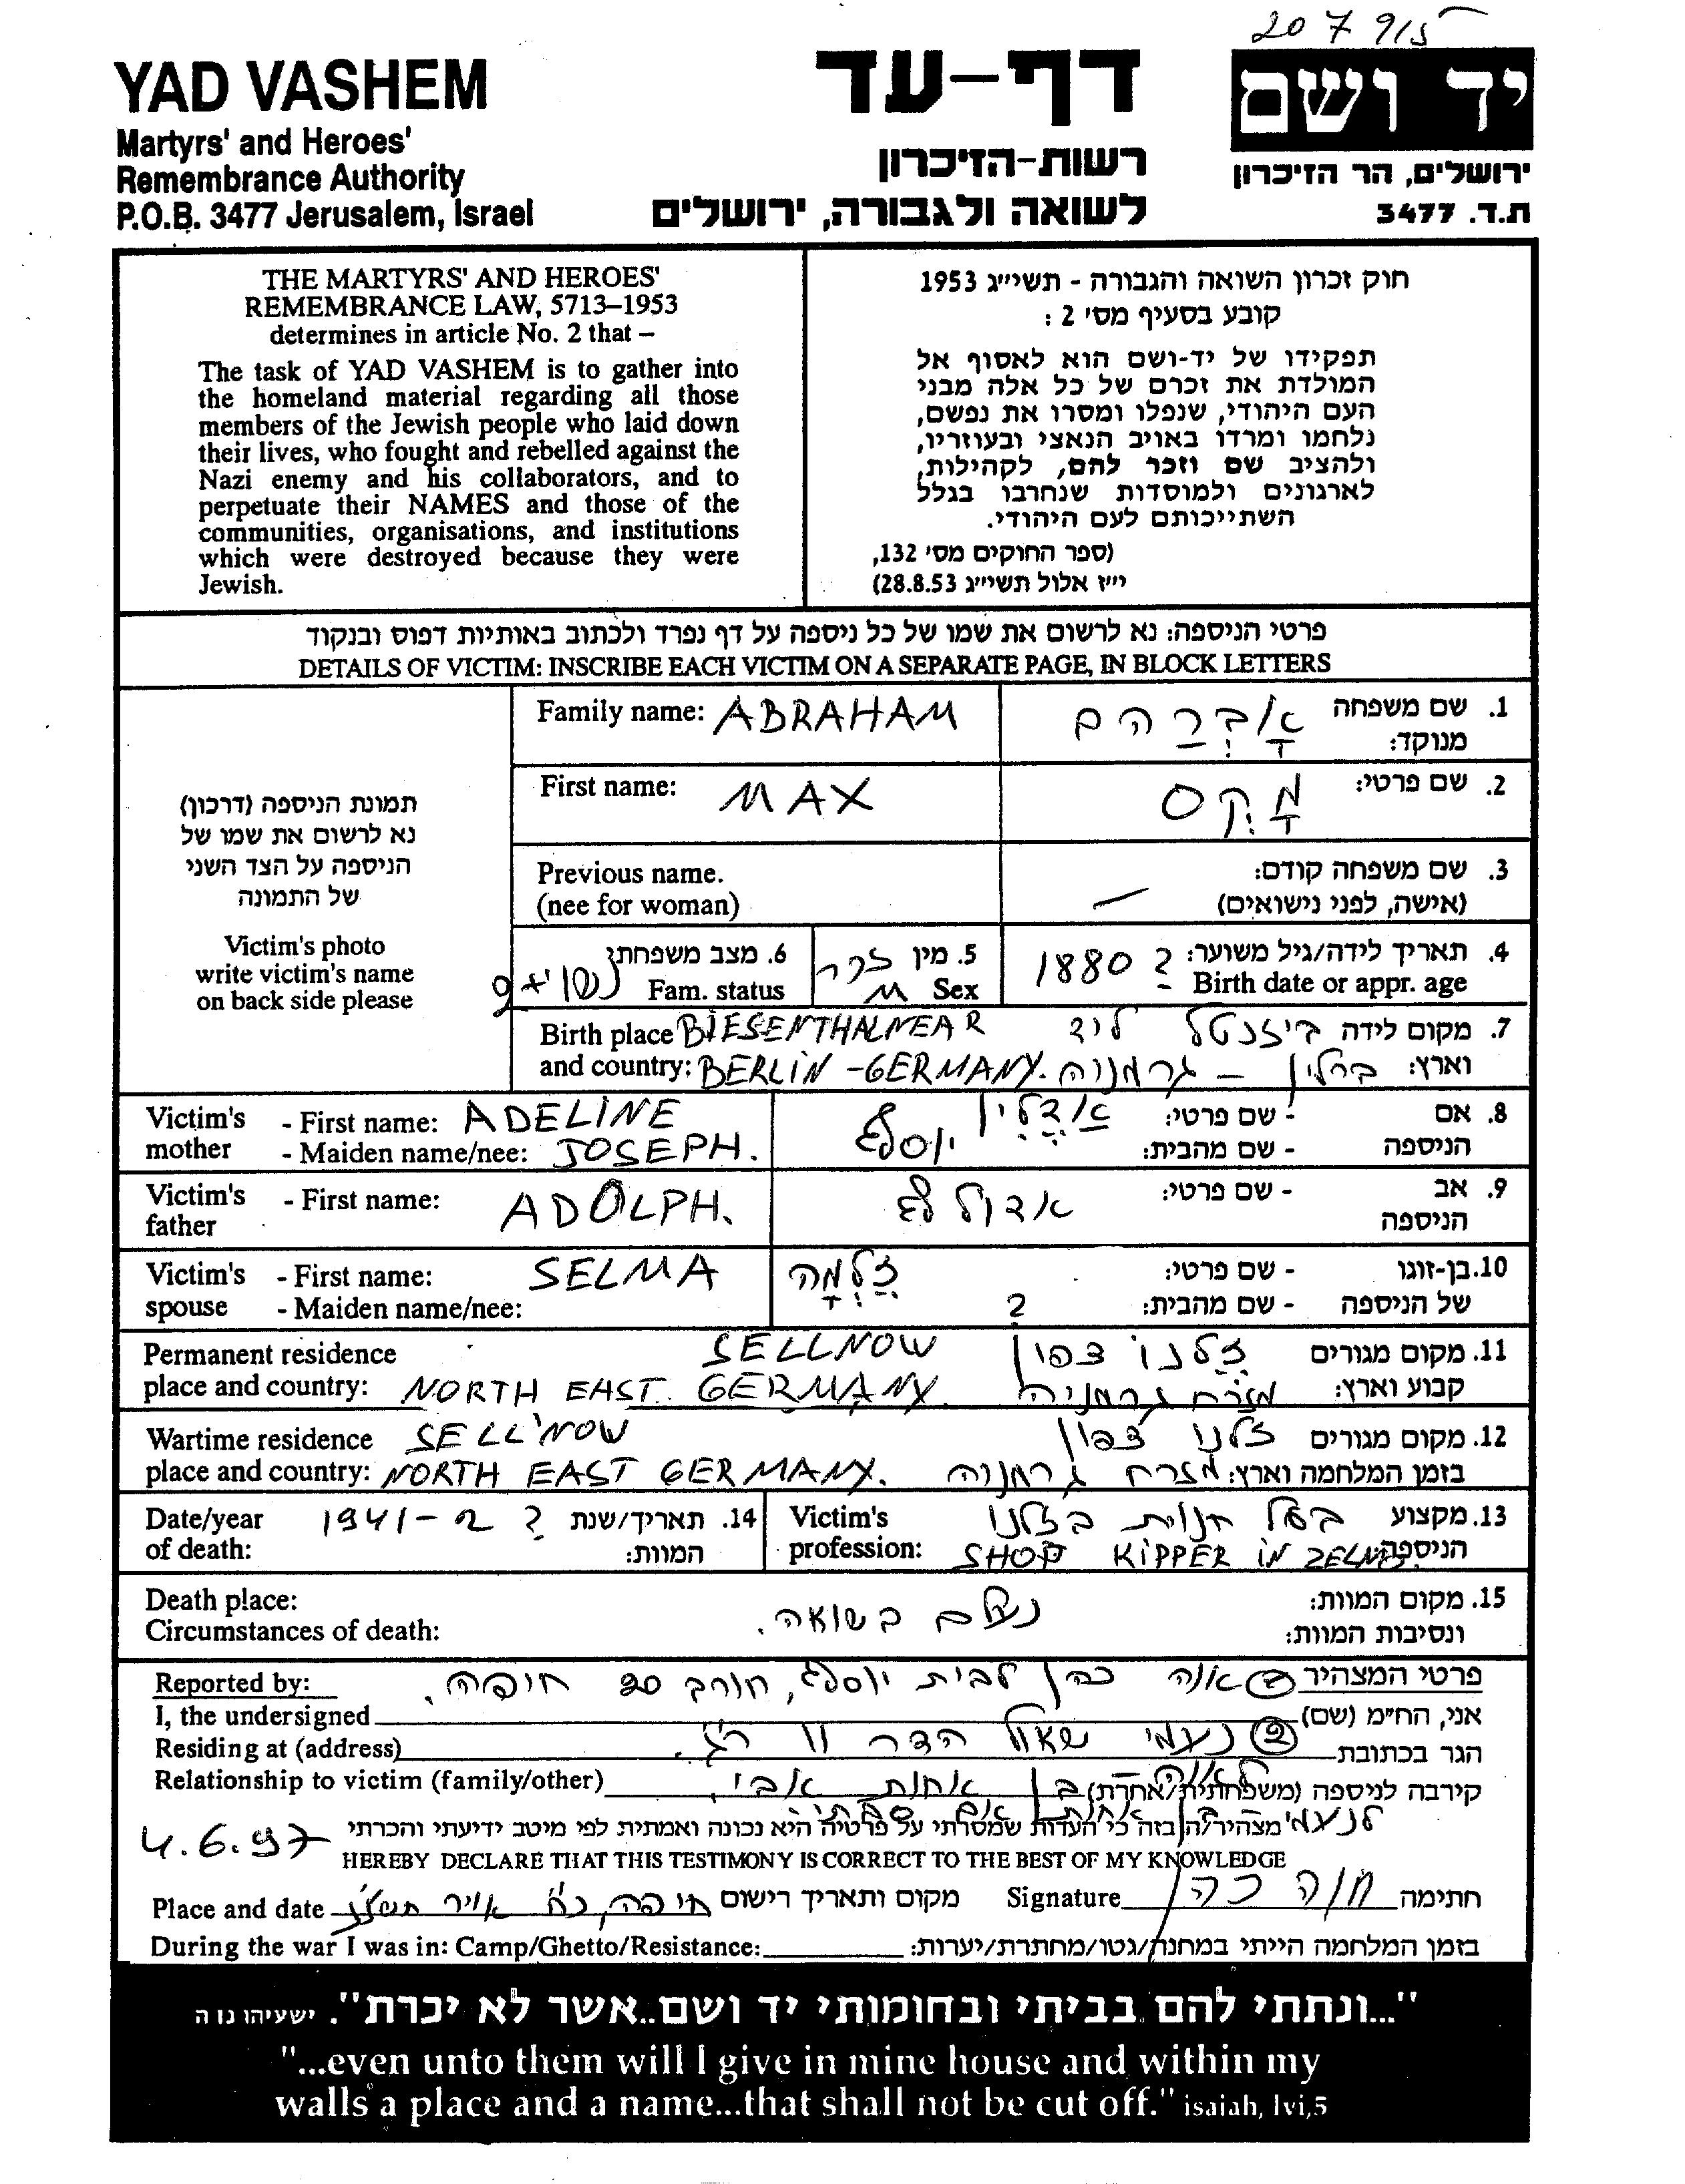 20 7 915
YAD VASHEM
Martyrs' and Heroes'
Remembrance Authority
P.O.B. 3477 Jerusalem, Israel
דף-עד
רשות-הזיכרון
לשואה ולגבורה, ירושלים
יד ושם
ירושלים, הר הזיכרון
ת.ד. 3477
THE MARTYRS' AND HEROES'
REMEMBRANCE LAW, 5713–1953
determines in article No. 2 that –
The task of YAD VASHEM is to gather into
the homeland material regarding all those
members of the Jewish people who laid down
their lives, who fought and rebelled against the
Nazi enemy and his collaborators, and to
perpetuate their NAMES and those of the
communities, organisations, and institutions
which were destroyed because they were
Jewish.
חוק זכרון השואה והגבורה - תשי״ג 1953
קובע בסעיף מס' 2 :
תפקידו של יד-ושם הוא לאסוף אל
המולדת את זכרם של כל אלה מבני
העם היהודי, שנפלו ומסרו את נפשם,
נלחמו ומרדו באויב הנאצי ובעוזריו,
ולהציב שם וזכר להם, לקהילות,
לארגונים ולמוסדות שנחרבו בגלל
השתייכותם לעם היהודי.
(ספר החוקים מס' 132,
י״ז אלול תשי״ג 28.8.53)
פרטי הניספה: נא לרשום את שמו של כל ניספה על דף נפרד ולכתוב באותיות דפוס ובנקוד
DETAILS OF VICTIM: INSCRIBE EACH VICTIM ON A SEPARATE PAGE, IN BLOCK LETTERS
תמונת הניספה (דרכון)
נא לרשום את שמו של
הניספה על הצד השני
של התמונה
Victim's photo
write victim's name
on back side please
Family name: ABRAHAM
אָבְּרַהם
1. שם משפחה
מנוקד:
First name: MAX
2. שם פרטי: מָקְס
Previous name.
(nee for woman)
3. שם משפחה קודם:
(אישה, לפני נישואים) —
4. תאריך לידה/גיל משוער: 1880 ?
Birth date or appr. age
5. מין זכר
M Sex
6. מצב משפחתי נשוי +2
Fam. status
Birth place BIESENTHAL NEAR
and country: BERLIN - GERMANY.
7. מקום לידה ביזנטל ליד
וארץ: ברלין – גרמניה
Victim's mother - First name: ADELINE
- Maiden name/nee: JOSEPH.
8. אם הניספה - שם פרטי: אַדֶלִין
- שם מהבית: יוסף
Victim's father - First name: ADOLPH.
9. אב הניספה - שם פרטי: אדולף
Victim's spouse - First name: SELMA
- Maiden name/nee:
10. בן-זוגו של הניספה - שם פרטי: זֶלְמָה
- שם מהבית: ?
Permanent residence SELLNOW
place and country: NORTH EAST. GERMANY
11. מקום מגורים זלנו צפון
קבוע וארץ: מזרח גרמניה
Wartime residence SELLNOW
place and country: NORTH EAST GERMANY.
12. מקום מגורים זלנו צפון
בזמן המלחמה וארץ: מזרח גרמניה
Date/year 1941-2 ? 14. תאריך/שנת
of death: המוות:
Victim's בעל חנות בזלנו 13. מקצוע
profession: SHOP KIPPER IN הניספה:
Death place:
Circumstances of death:
נעלם בשואה.
15. מקום המוות:
ונסיבות המוות:
Reported by: פרטי המצהיר
כהן לבית יוסף, חורב 20 חיפה.
I, the undersigned אני, הח״מ (שם)
② נעמי שאול הדר 11
Residing at (address) הגר בכתובת
Relationship to victim (family/other) קירבה לניספה (משפחתית/אחרת)
בן אחות אבי.
לנעמי
מצהיר/ה בזה כי העדות שמסרתי על פרטיה היא נכונה ואמתית לפי מיטב ידיעתי והכרתי
4.6.97 HEREBY DECLARE THAT THIS TESTIMONY IS CORRECT TO THE BEST OF MY KNOWLEDGE
Place and date חיפה, כ״ח אייר תשנ״ז מקום ותאריך רישום Signature חנה כהן חתימה
During the war I was in: Camp/Ghetto/Resistance: בזמן המלחמה הייתי במחנה/גטו/מחתרת/יערות:
"...ונתתי להם בביתי ובחומותי יד ושם..אשר לא יכרת". ישעיהו נו ה
"...even unto them will I give in mine house and within my
walls a place and a name...that shall not be cut off." isaiah, lvi,5